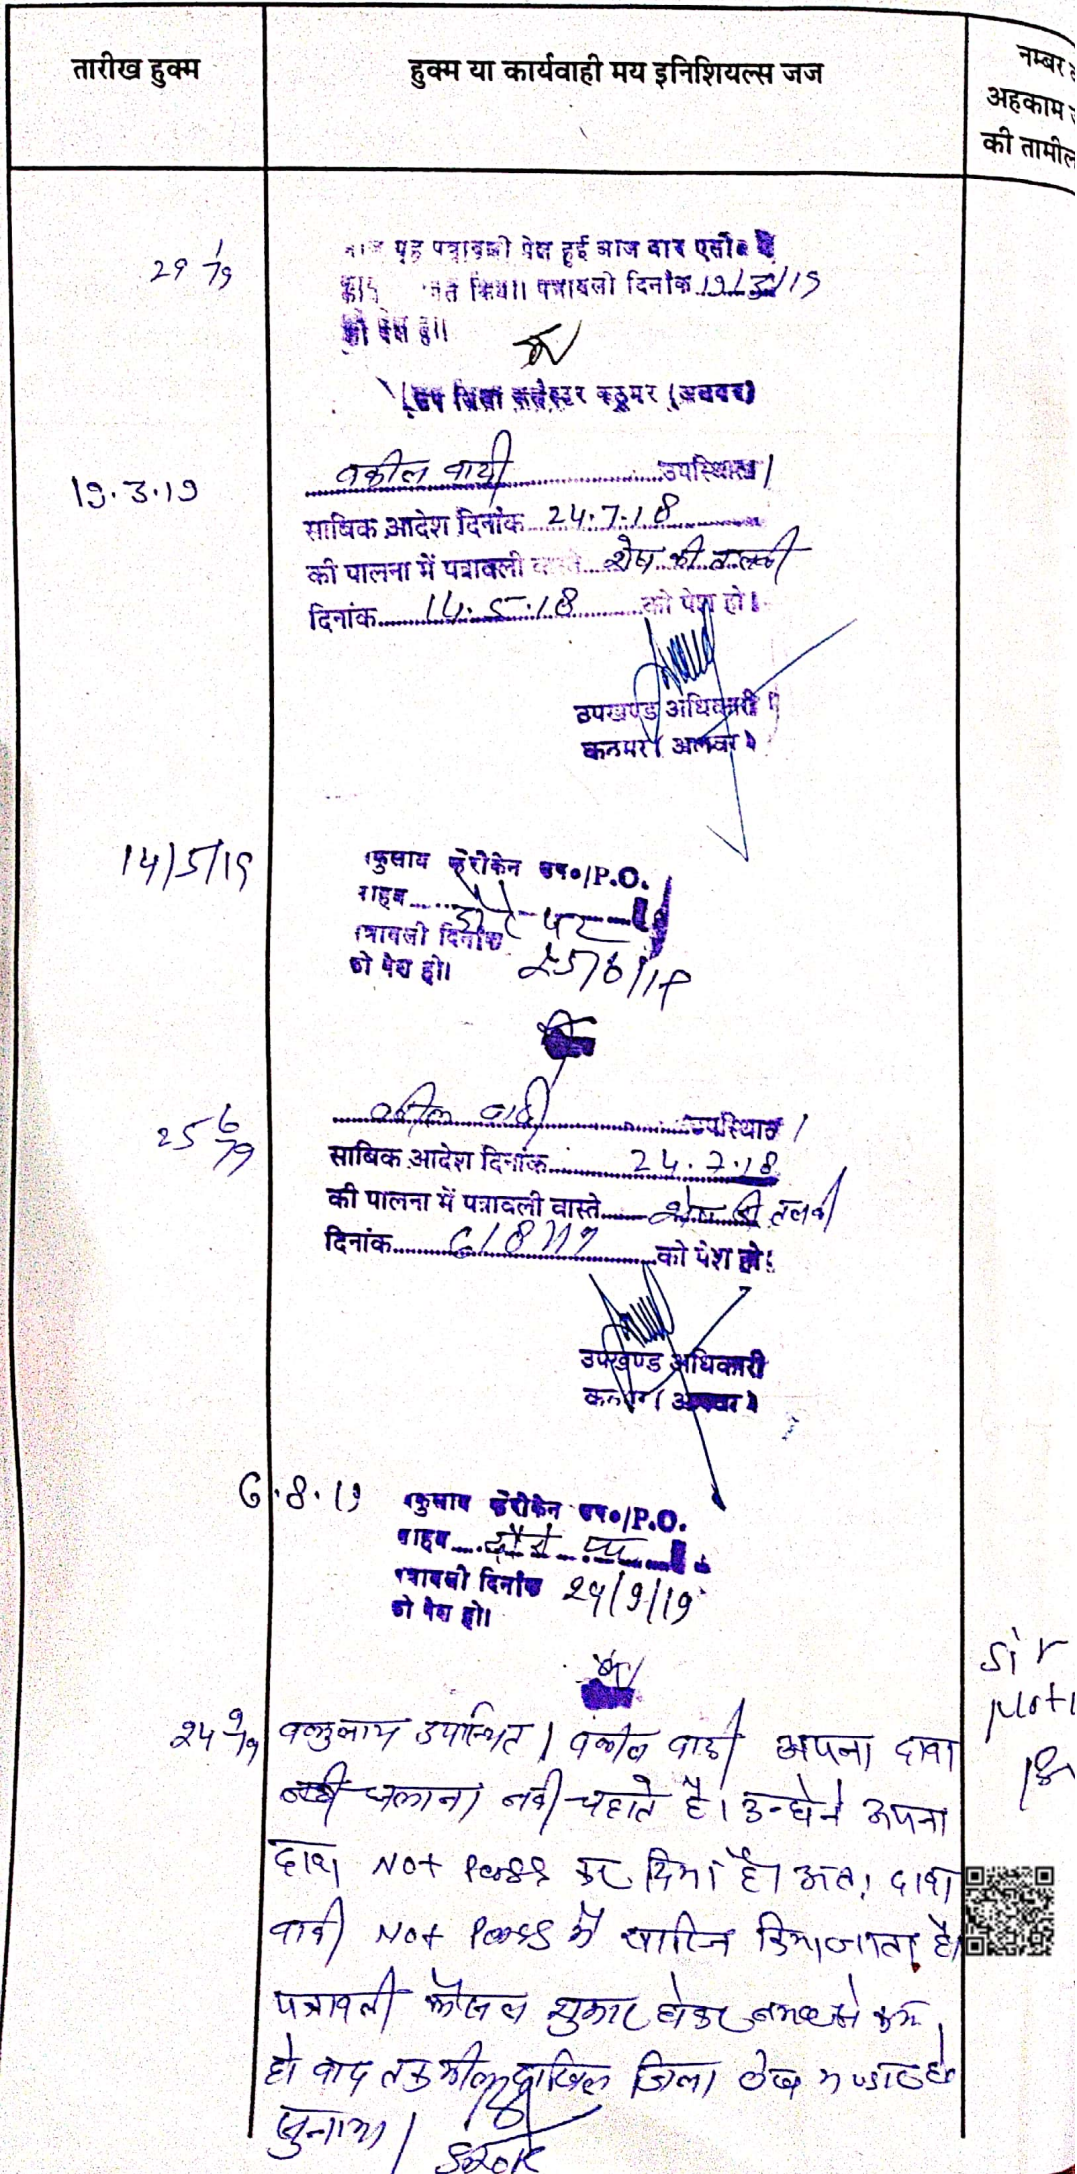 तारीख हुक्म
हुक्म या कार्यवाही मय इनिशियल्स जज
नम्बर
अहकाम
की तामील
29 1/19
यह पत्रावली पेश हुई आज बार एसो०
पत्रावली दिनांक 19/3/19
को पेश हो।
(उप जिला कलेक्टर कठूमर (अलवर)
19.3.19
वकील वादी उपस्थित।
साबिक आदेश दिनांक 24.7.18
की पालना में पत्रावली वास्ते शेष की तलबी
दिनांक 14.5.18 को पेश हो।
उपखण्ड अधिकारी
कठूमर (अलवर)
14/5/19
P.O.
दौरे पर
पत्रावली दिनांक 25/6/19
को पेश हो।
25 6/19
वकील वादी उपस्थित।
साबिक आदेश दिनांक 24.7.18
की पालना में पत्रावली वास्ते शेष की तलबी
दिनांक 6/8/19 को पेश हो।
उपखण्ड अधिकारी
कठूमर (अलवर)
6.8.19
P.O.
दौरे पर
पत्रावली दिनांक 24/9/19
को पेश हो।
24 9/19
वकुलाय उपस्थित। वकील वादी अपना दावा
चलाना नही चहाते है। उन्होने अपना
दावा Not Press कर दिया है। अतः दावा
वादी Not Press में खारिज किया जाता है।
पत्रावली फैसल शुमार होकर नम्बर से कम
हो बाद तकमील दाखिल जिला लेख
सुनाया।
Sir